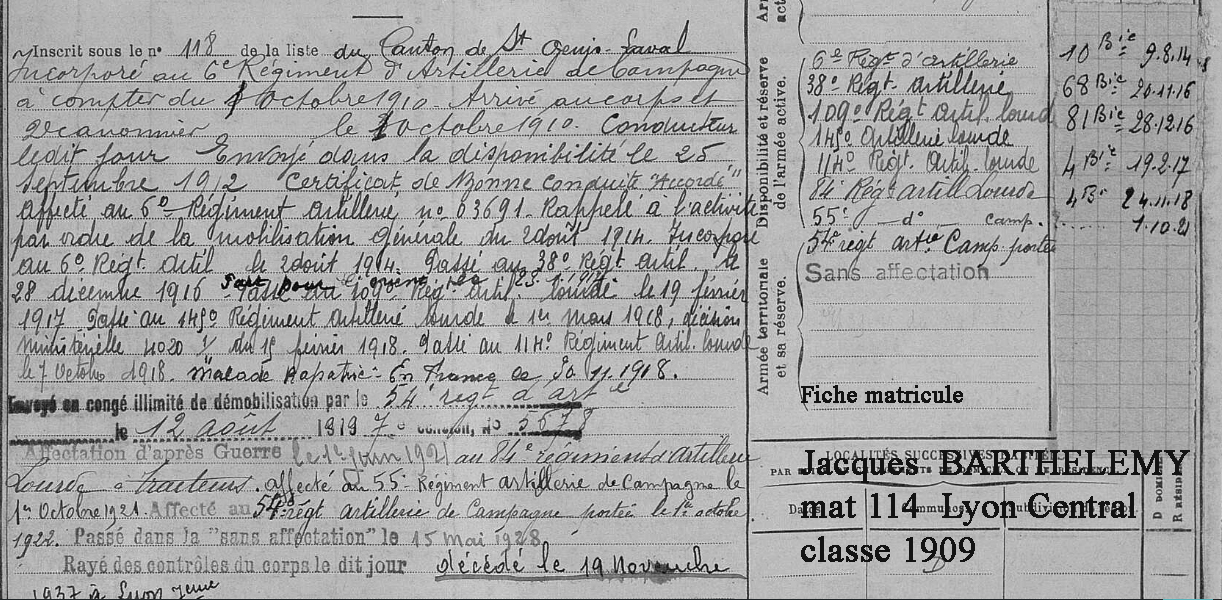 Inscrit sous le n° 118 de la liste du Canton de St Genis-Laval
Incorporé au 6e Régiment d'Artillerie de Campagne
à compter du 1 Octobre 1910. Arrivé au corps et
2e canonnier le 1 octobre 1910. Conducteur
ledit jour Envoyé dans la disponibilité le 25
Septembre 1912 Certificat de Bonne conduite "Accordé"
Affecté au 6e Régiment Artillerie n° 03691. Rappelé à l'activité
par ordre de la mobilisation générale du 2 août 1914. Incorporé
au 6e Régt. Artil. le 2 août 1914. Passé au 38e Régt Artil. le
28 décembre 1916 Passé au 109e Régt Artil. lourde le 19 février
1917 Passé au 145e Régiment Artillerie lourde le 1er Mars 1918, décision
Ministérielle 4020 du 15 février 1918. Passé au 114e Régiment Artil. lourde
le 7 Octobre 1918. Malade Rapatrié En France le 30.11.1918.
Envoyé en congé illimité de démobilisation par le 54e régt d'artie
le 12 août 1919 7e échelon, No 5678
Affectation d'après Guerre le 1er Juin 1921 au 84e régiment d'Artillerie
Lourde à tracteurs. affecté au 55e Régiment artillerie de Campagne le
1er Octobre 1921. Affecté au 54e régt artillerie de Campagne portée le 1er octobre
1922. Passé dans la "sans affectation" le 15 mai 1928
Rayé des contrôles du corps le dit jour décédé le 19 Novembre
1937 à Lyon 7eme
Disponibilité et réserve
de l'armée active.
6e Régt d'artillerie
38e Régt. artillerie
109e Régt Artil. lourde
145e Artillerie lourde
114e Régt. Artil. lourde
84e Régt artill Lourde
55e d° camp.
54e régt artie Camp. portée
Sans affectation
Armée territoriale
et sa réserve.
10 Bie 9.8.14
68 Bie 20.11.16
81 Bie 28.12.16
4 Bie 19.2.17
4 Bie 24.11.18
1.10.21
Fiche matricule
LOCALITÉS
Jacques BARTHELEMY
mat 114 Lyon Central
classe 1909